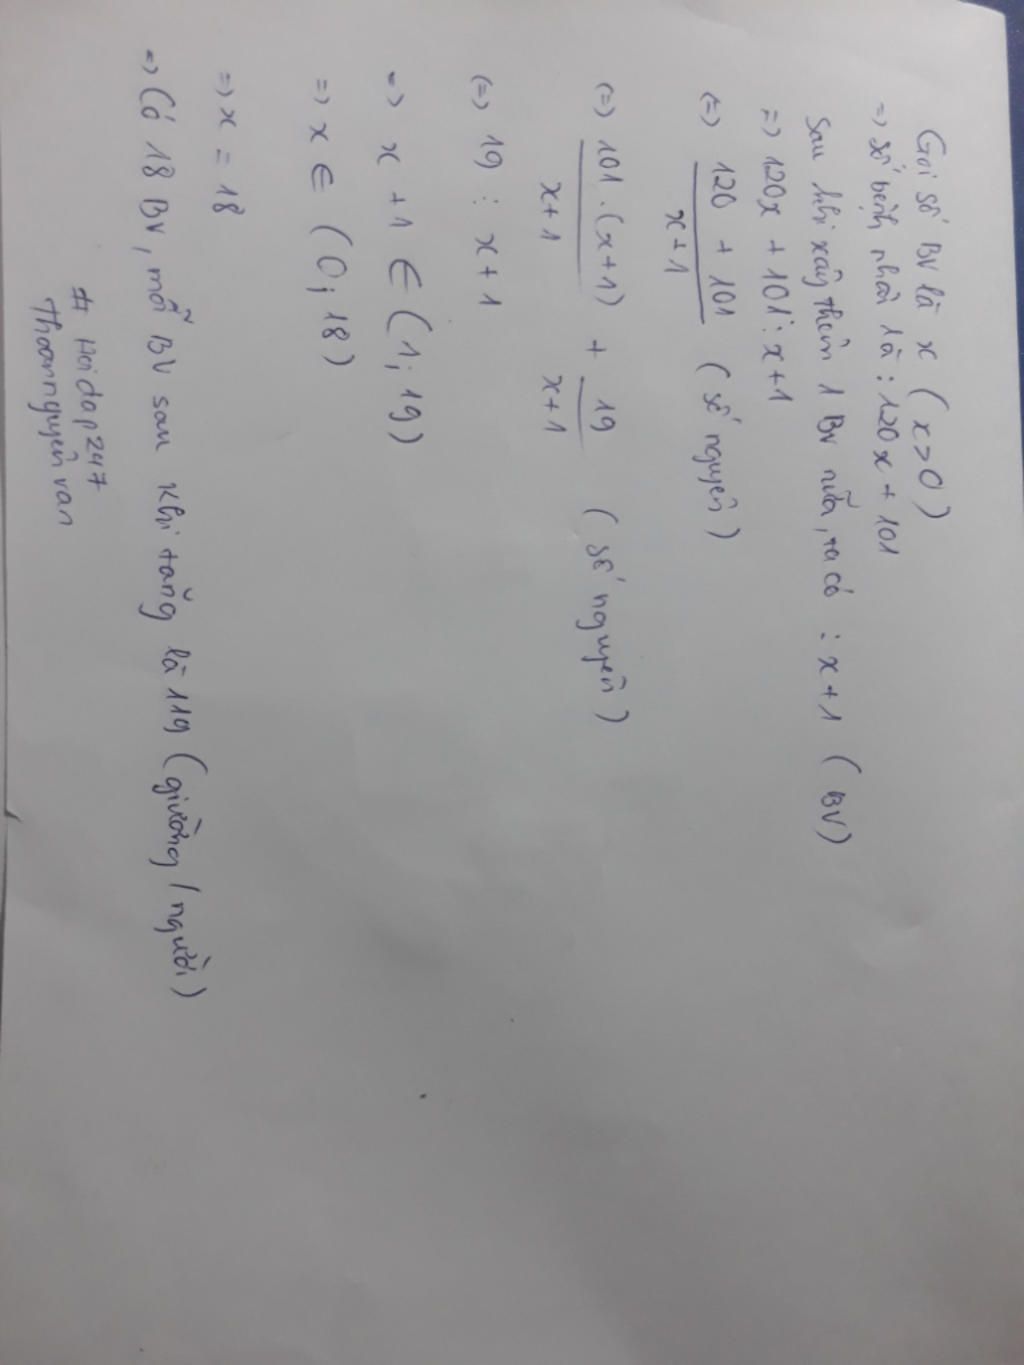 Gọi số BV là x ( x>0 )
=> số bệnh nhân là : 120x + 101
Sau khi xây thêm 1 BV nữa, ta có : x+1 ( BV)
=> 120x + 101 ⋮ x+1
(=) 120 + 101 / x+1 ( số nguyên )
(=) 101 . (x+1) / x+1 + 19 / x+1 ( số nguyên )
(=) 19 ⋮ x+1
=> x +1 ∈ (1; 19)
=> x ∈ (0; 18)
=> x = 18
=> Có 18 BV, mỗi BV sau khi tăng là 119 (giường / người)
# Hoidap247
Thoannguyenvan